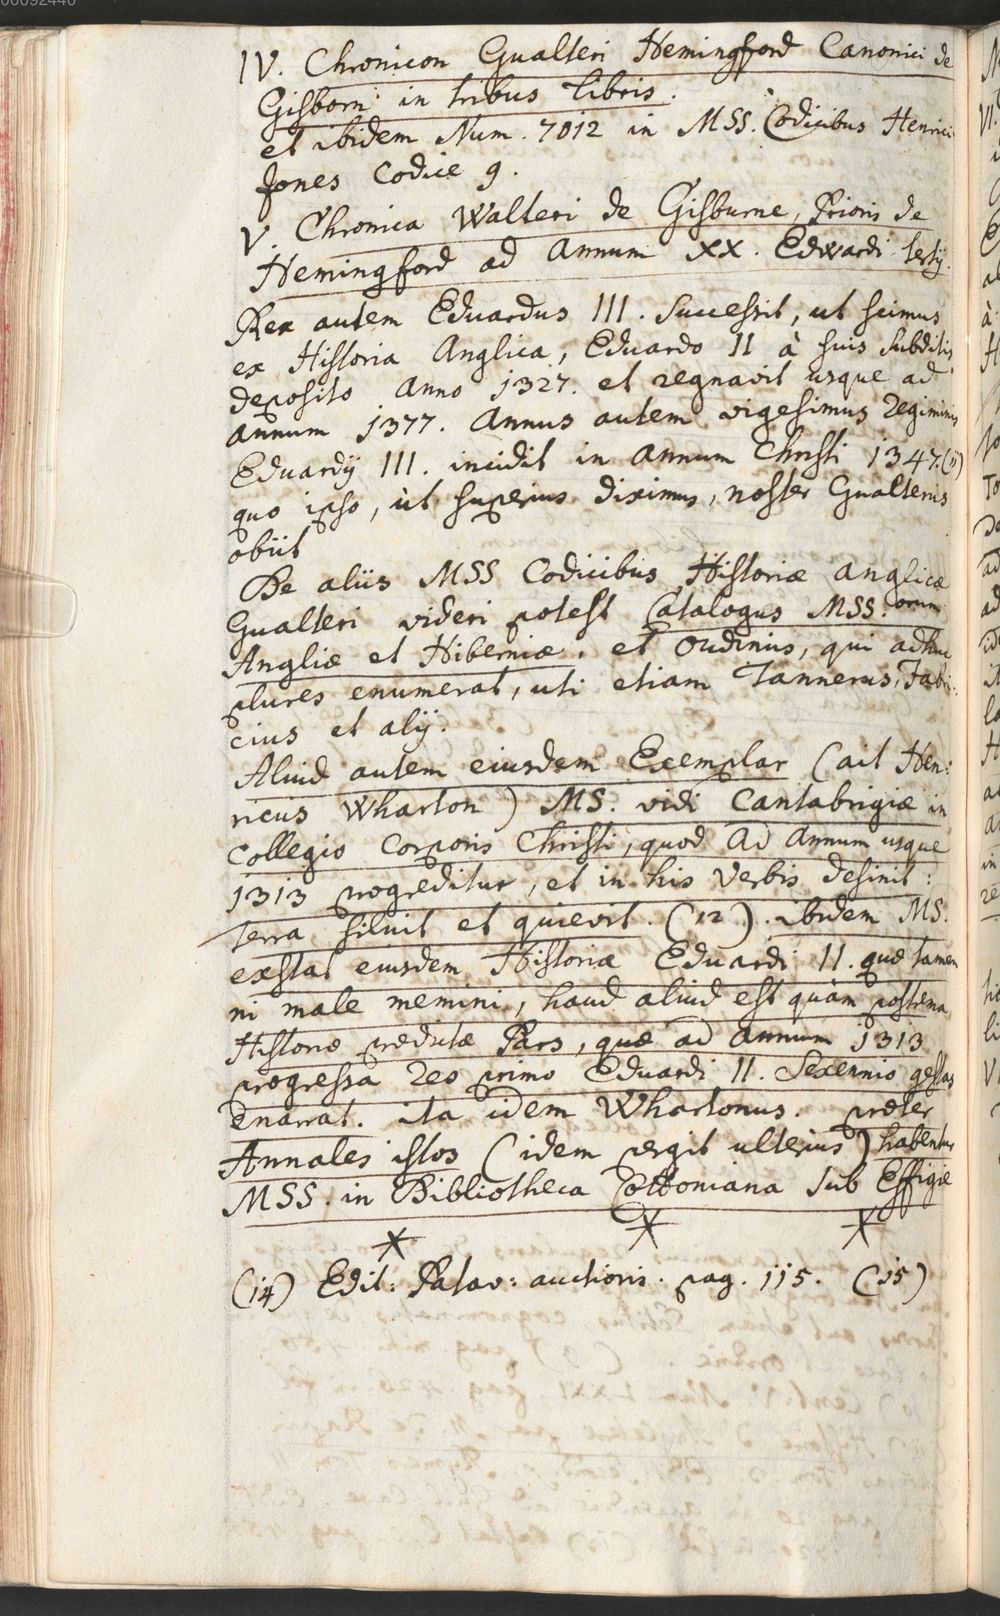 00092440
IV. Chronicon Gualteri Hemingford Canonici de
Gisborn in tribus libris.
et ibidem Num. 7012 in MSS. Codicibus Henrici
Jones Codice 9.
V. Chronica Walteri de Gisburne, Prioris de
Hemingford ad Annum XX. Edwardi tertij.
Rex autem Eduardus III. Successit, ut scimus
ex Historia Anglica, Eduardo II à suis subditis
deposito Anno 1327. et regnavit usque ad
annum 1377. Annus autem vigesimus Regiminis
Eduardij III. incidit in annum Christi 1347.(ij)
quo ipso, ùt superius diximus, noster Gualterus
obiit
De aliis MSS Codicibus Historiæ anglicæ
Gualteri videri potest Catalogus MSS.orum
Angliæ et Hiberniæ. et Oudinus, qui adhuc
plures enumerat, uti etiam Tannerus, Fabri:
cius et alij.
Aliud autem eiusdem Exemplar (ait Hen:
ricus Wharton) MS. vidi Cantabrigiæ in
Collegio Corporis Christi, quod ad Annum usque
1313 progreditur, et in his Verbis desinit:
terra siluit et quievit. (12). ibidem MS.
exstat eiusdem Historia Eduardi II. quæ tamen
ni male memini, haud aliud est quàm postrema
Historiæ prædictæ Pars, quæ ad annum 1313
progressa Res primo Eduardi II. Sexennio gestas
enarrat. ita idem Whartonus. præter
Annales istos (idem pergit ulterius) habentur
MSS. in Bibliotheca Cottoniana sub Effigie
* * *
(14) Edit: Patav: auctioris. pag. 115. (15)